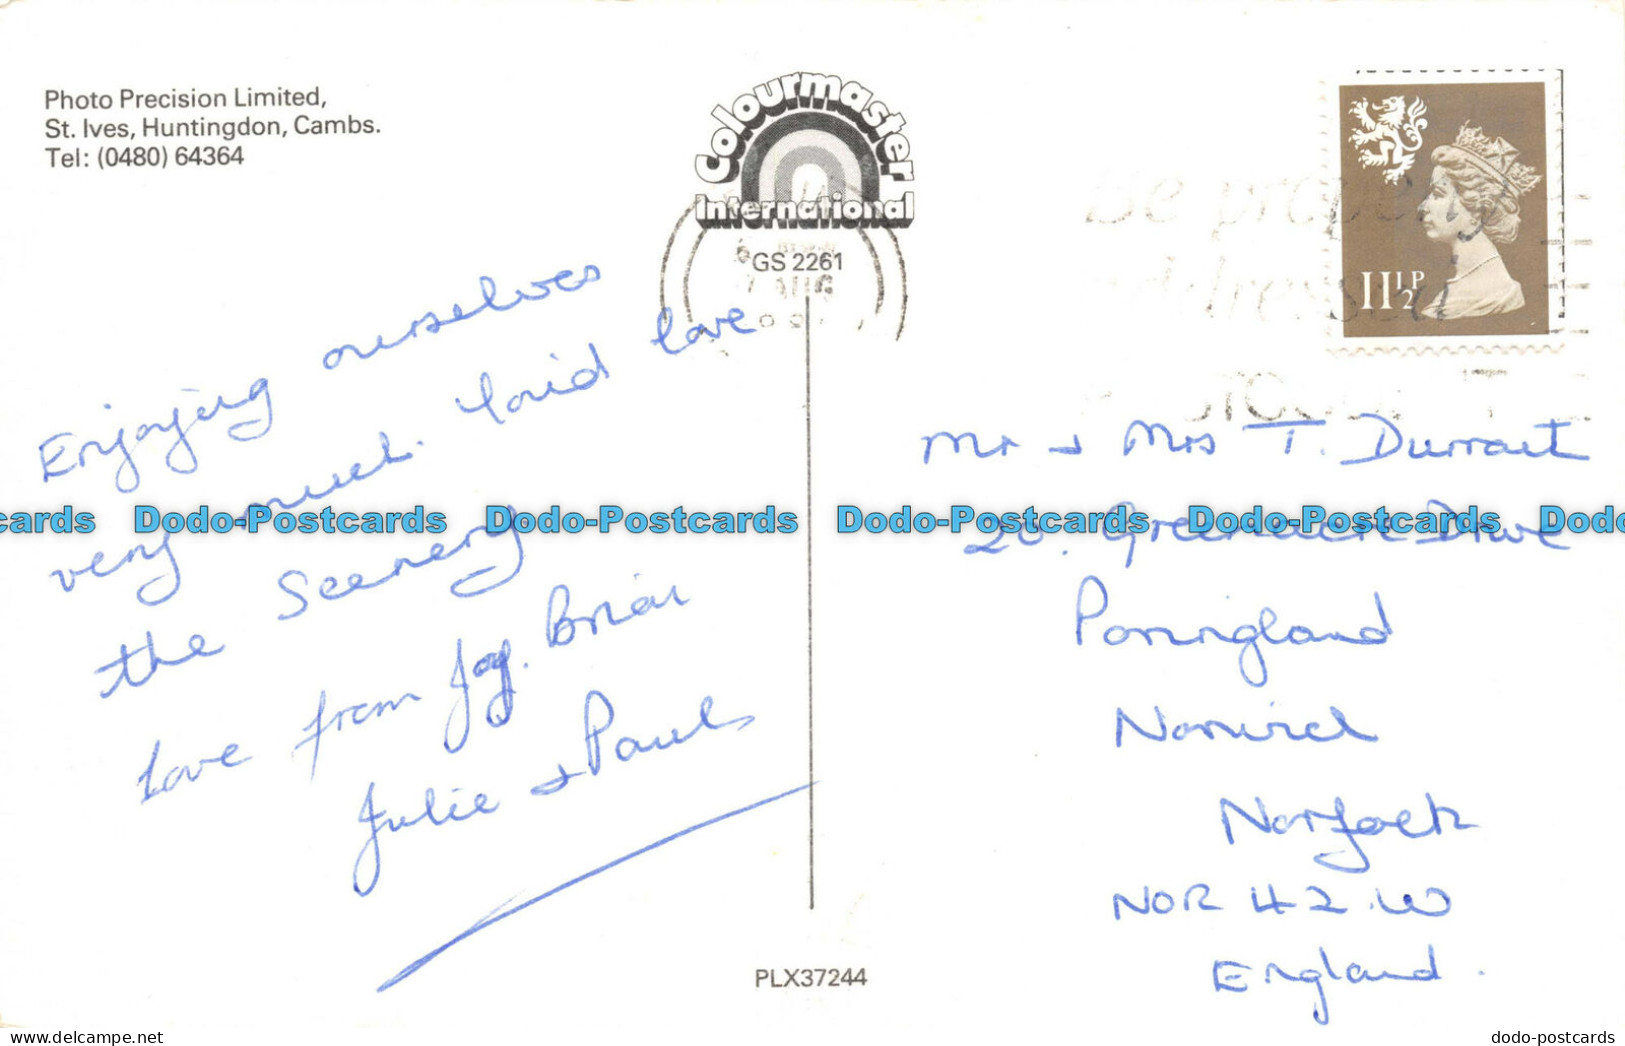 Photo Precision Limited,
St. Ives, Huntingdon, Cambs.
Tel: (0480) 64364
Colourmaster
International
GS 2261
AUG
Be properly
addressed
11½P
Enjoying ourselves
very much. Mid love
the Scenery
love from Joy. Brian
Julie & Paul
Mr & Mrs T. Durrant
20. Greenacre Drive
Poringland
Norwich
Norfolk
NOR 42.W
England.
cards Dodo-Postcards Dodo-Postcards Dodo-Postcards Dodo-Postcards Dodo
PLX37244
dodo-postcards